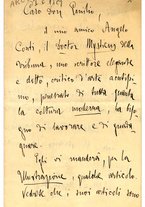 Caro don Emilio,
il mio amico Angelo
Conti, il Doctor Mysticus della
Tribuna, uno scrittore elegante
e dotto, critico d'arte acutissi-
mo, penetrato di tutta quanta
la coltura moderna, ha biso-
gno di lavorare e di guada-
gnare.
Egli vi manderà, per la
Illustrazione, qualche articolo.
Vedrete che i suoi articoli sono